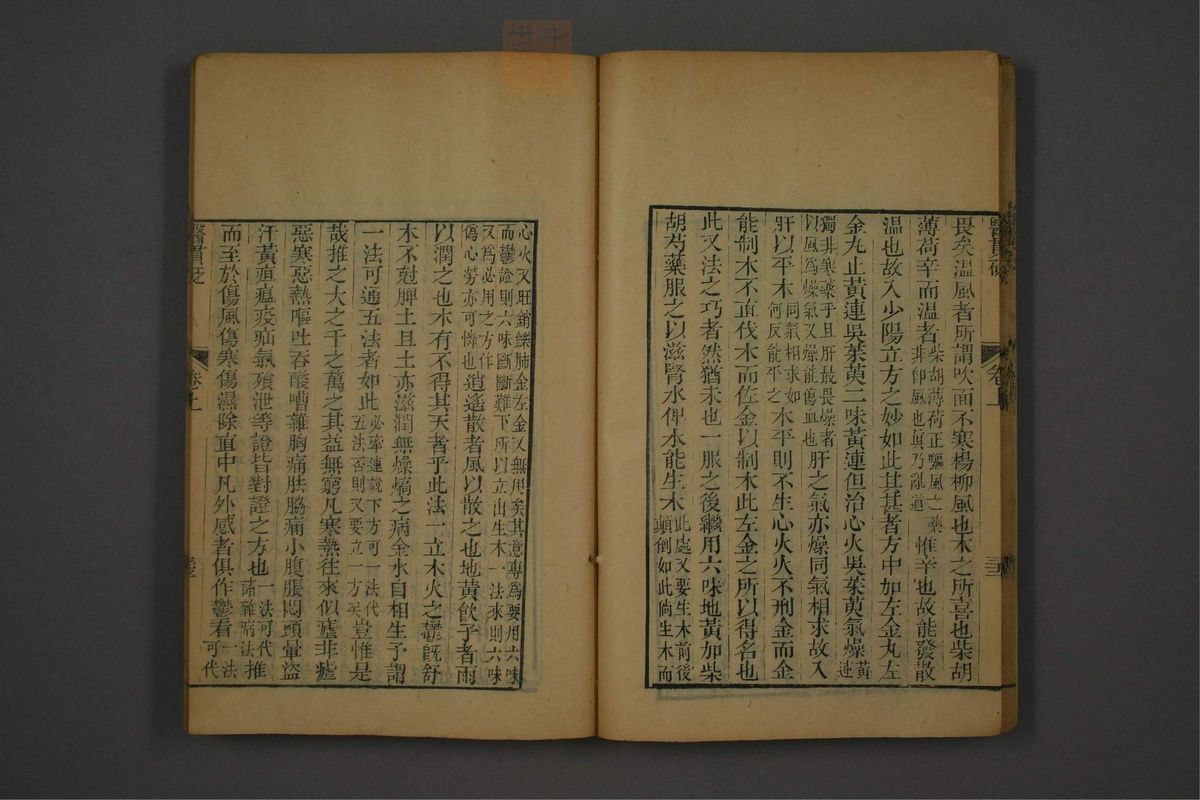 畏矣溫風者所謂吹面不寒楊柳風也木之所喜也柴胡
薄荷辛而溫者柴胡薄荷正驅風之藥非卽風也眞乃亂道惟辛也故能發散
溫也故入少陽立方之妙如此其甚者方中加左金丸左
金丸止黃連吳茱萸二味黃連但治心火吳茱萸氣燥黃連
獨非寒藥乎且肝最畏燥者以風爲燥氣又燥能傷血也肝之氣亦燥同氣相求故入
肝以平木同氣相求如何反能平之木平則不生心火火不刑金而金
能制木不直伐木而佐金以制木此左金之所以得名也
此又法之巧者然猶未也一服之後繼用六味地黃加柴
胡芍藥服之以滋腎水俾水能生木此處又要生木前後顚倒如此倘生木而
心火又旺銷鑠肺金左金又無用矣其意專爲要用六味
而鬱證則六味斷斷難下所以立出生木一法來則六味
又爲必用之方作僞心勞亦可憐也逍遙散者風以散之也地黃飮子者雨
以潤之也木有不得其天者乎此法一立木火之鬱旣舒
木不尅脾土且土亦滋潤無燥熇之病金水自相生予謂
一法可通五法者如此必牽連說下方可一法代五法否則又要立一方矣豈惟是
哉推之大之千之萬之其益無窮凡寒熱往來似瘧非瘧
惡寒惡熱嘔吐吞酸嘈雜胸痛胠脇痛小腹脹悶頭暈盜
汗黃疸瘟疫疝氣飱泄等證皆對證之方也一法可代諸雜病法推
而至於傷風傷寒傷濕除直中凡外感者俱作鬱看一法可代
醫貫砭
卷上
三三